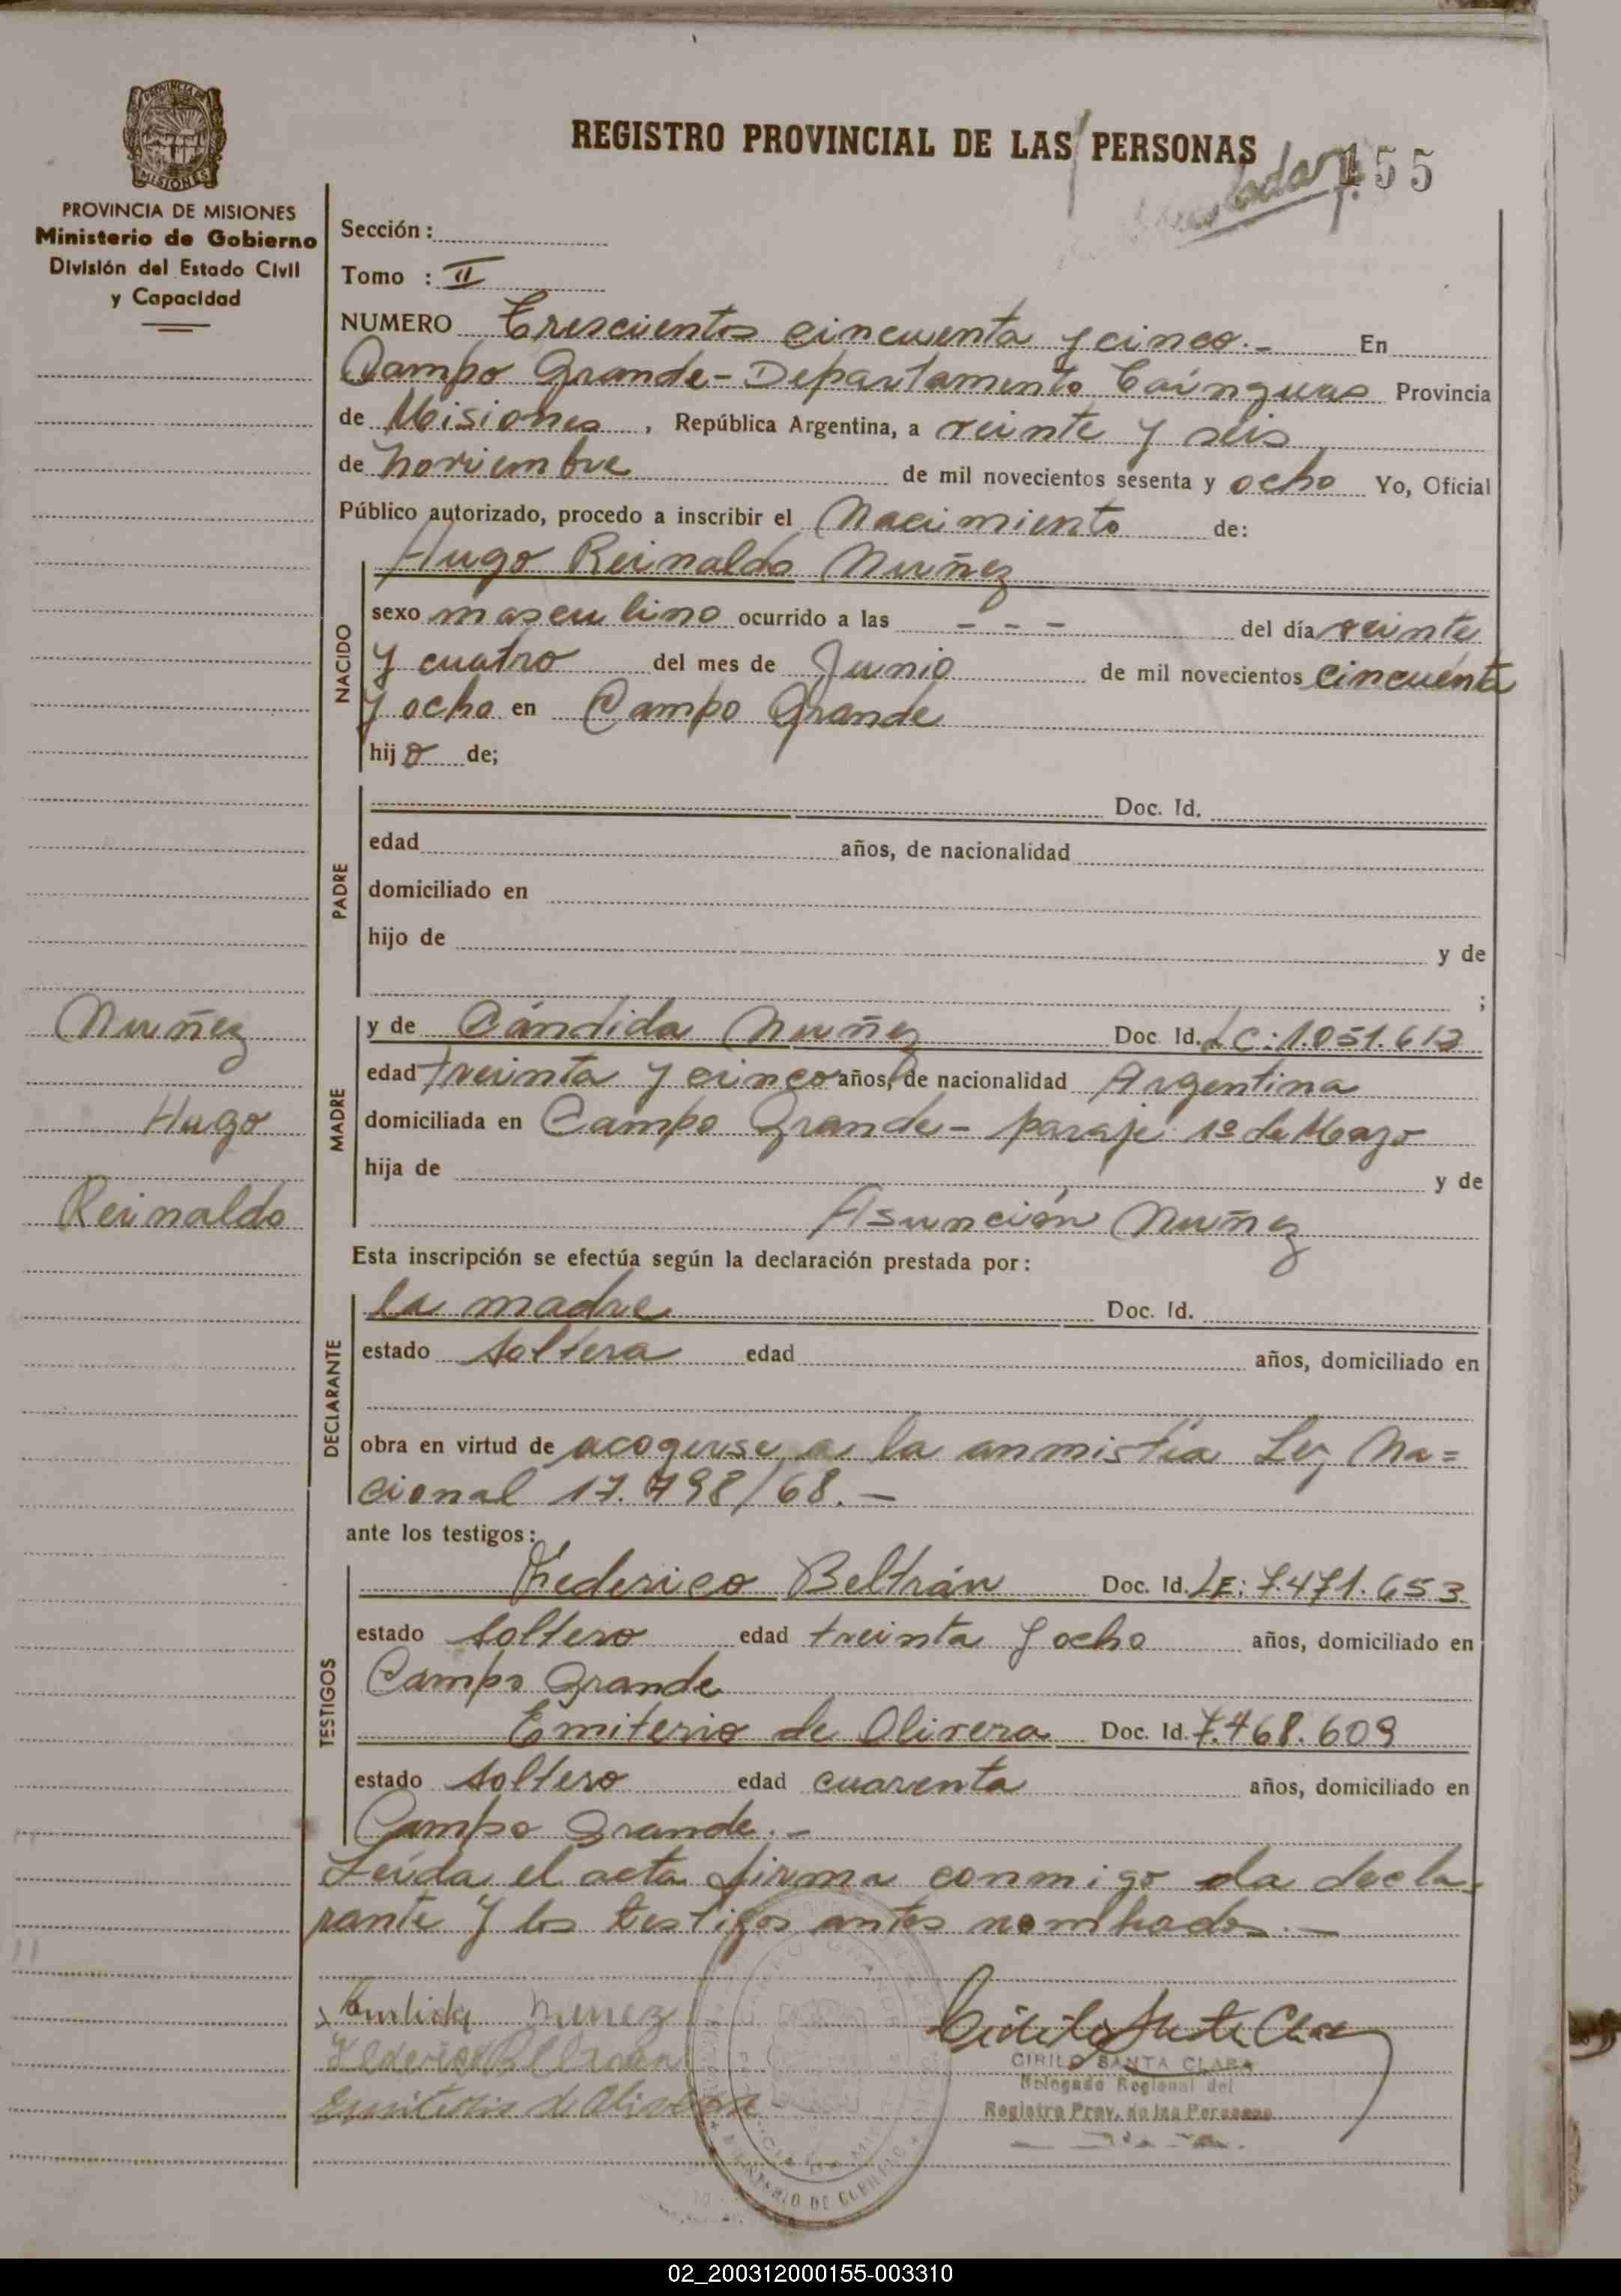 REGISTRO PROVINCIAL DE LAS PERSONAS
155
PROVINCIA DE MISIONES
Ministerio de Gobierno
División del Estado Civil
y Capacidad
Sección :
Tomo : II
NUMERO Trescientos cincuenta y cinco.- En
Campo Grande - Departamento Cainguas Provincia
de Misiones, República Argentina, a veinte y seis
de noviembre de mil novecientos sesenta y ocho Yo, Oficial
Público autorizado, procedo a inscribir el Nacimiento de:
NACIDO
Hugo Reinaldo Nuñez
sexo masculino ocurrido a las - - - del día veinte
y cuatro del mes de Junio de mil novecientos cincuenta
y ocho en Campo Grande
hijo de;
PADRE
Doc. Id.
edad años, de nacionalidad
domiciliado en
hijo de y de
;
Nuñez
Hugo
Reinaldo
MADRE
y de Cándida Nuñez Doc. Id. LC: 1.051.613
edad treinta y cinco años, de nacionalidad Argentina
domiciliada en Campo Grande - paraje 1º de Marzo
hija de y de
Asunción Nuñez
Esta inscripción se efectúa según la declaración prestada por :
DECLARANTE
la madre Doc. Id.
estado soltera edad años, domiciliado en
obra en virtud de acogerse a la anmistía Ley Na=
cional 17.798/68.-
ante los testigos :
TESTIGOS
Federico Beltrán Doc. Id. LE: 7.471.653
estado soltero edad treinta y ocho años, domiciliado en
Campo Grande
Emiterio de Olivera Doc. Id. 7.468.609
estado soltero edad cuarenta años, domiciliado en
Campo Grande.-
Leída el acta firma conmigo la decla-
rante y los testigos antes nombrados.-
Nunez
CIRILO SANTA CLARA
Delegado Regional del
Registro Prov. de las Personas
MINISTERIO DE GOBIERNO
02_200312000155-003310